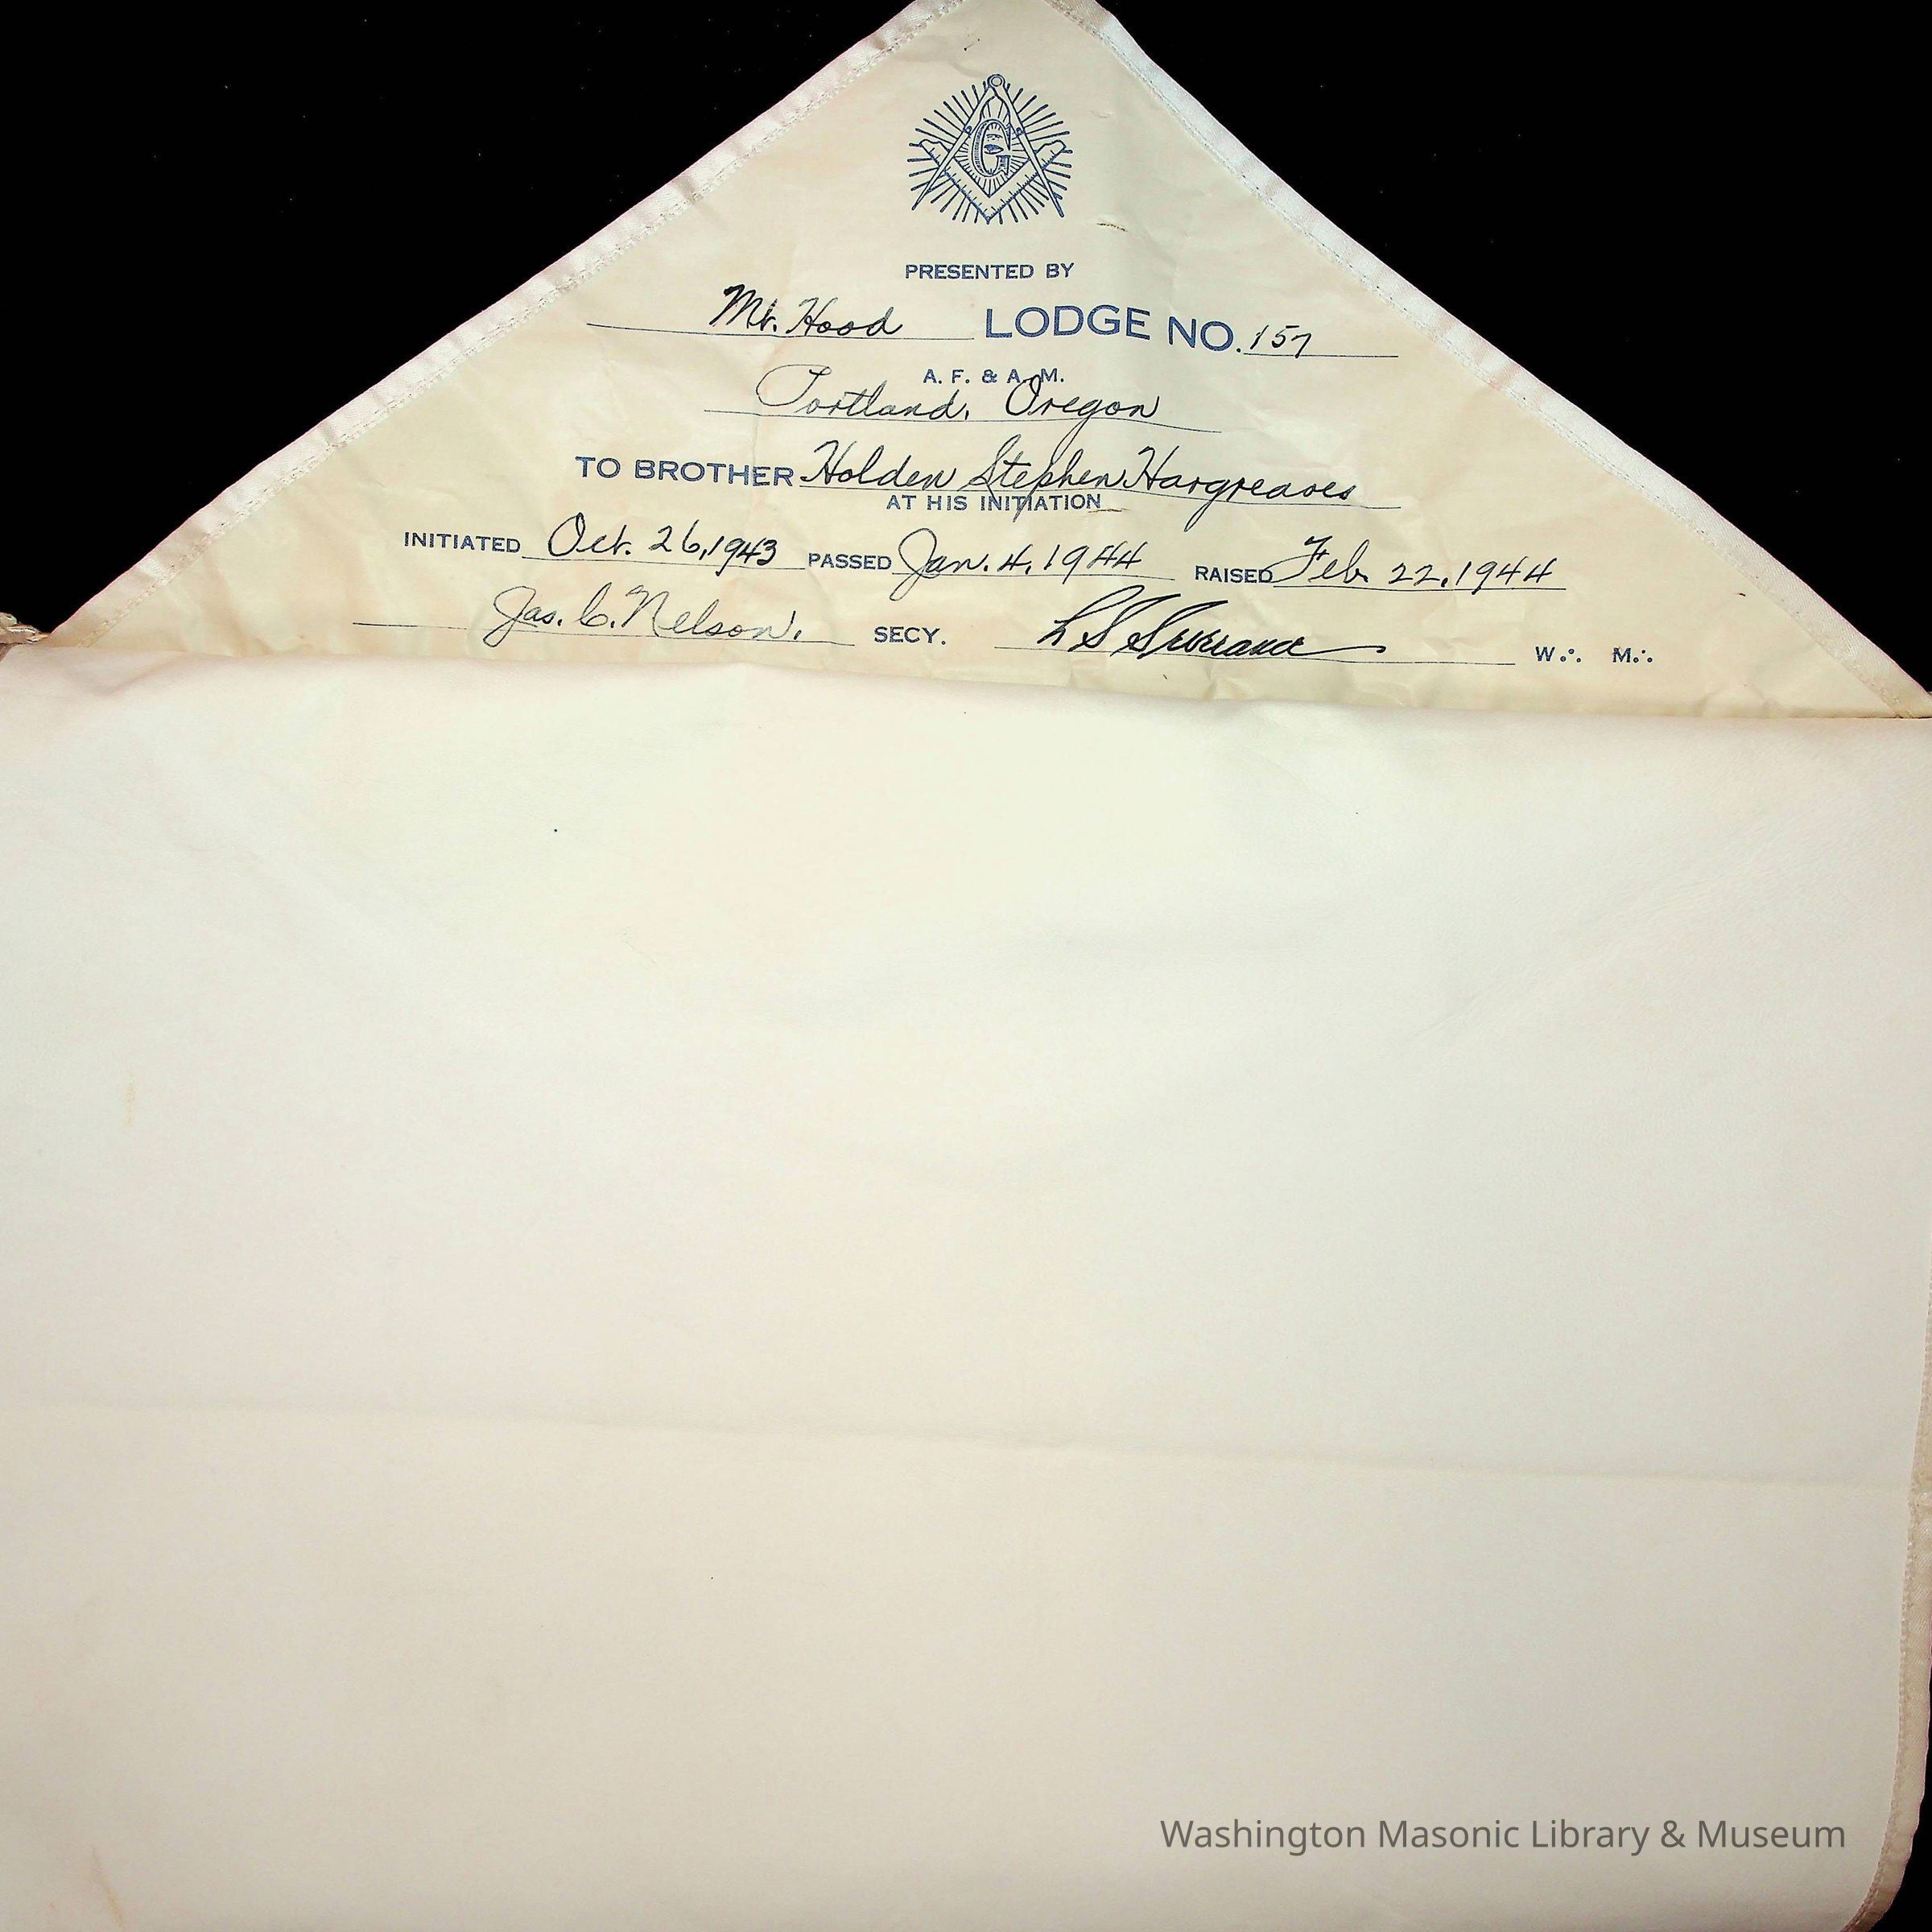 G
PRESENTED BY
Mt. Hood LODGE NO. 157
A. F. & A. M.
Portland, Oregon
TO BROTHER Holden Stephen Hargreaves
AT HIS INITIATION
INITIATED Oct. 26, 1943 PASSED Jan. 4, 1944 RAISED Feb. 22, 1944
Jas. C. Nelson. SECY. L S W∴ M∴
Washington Masonic Library & Museum